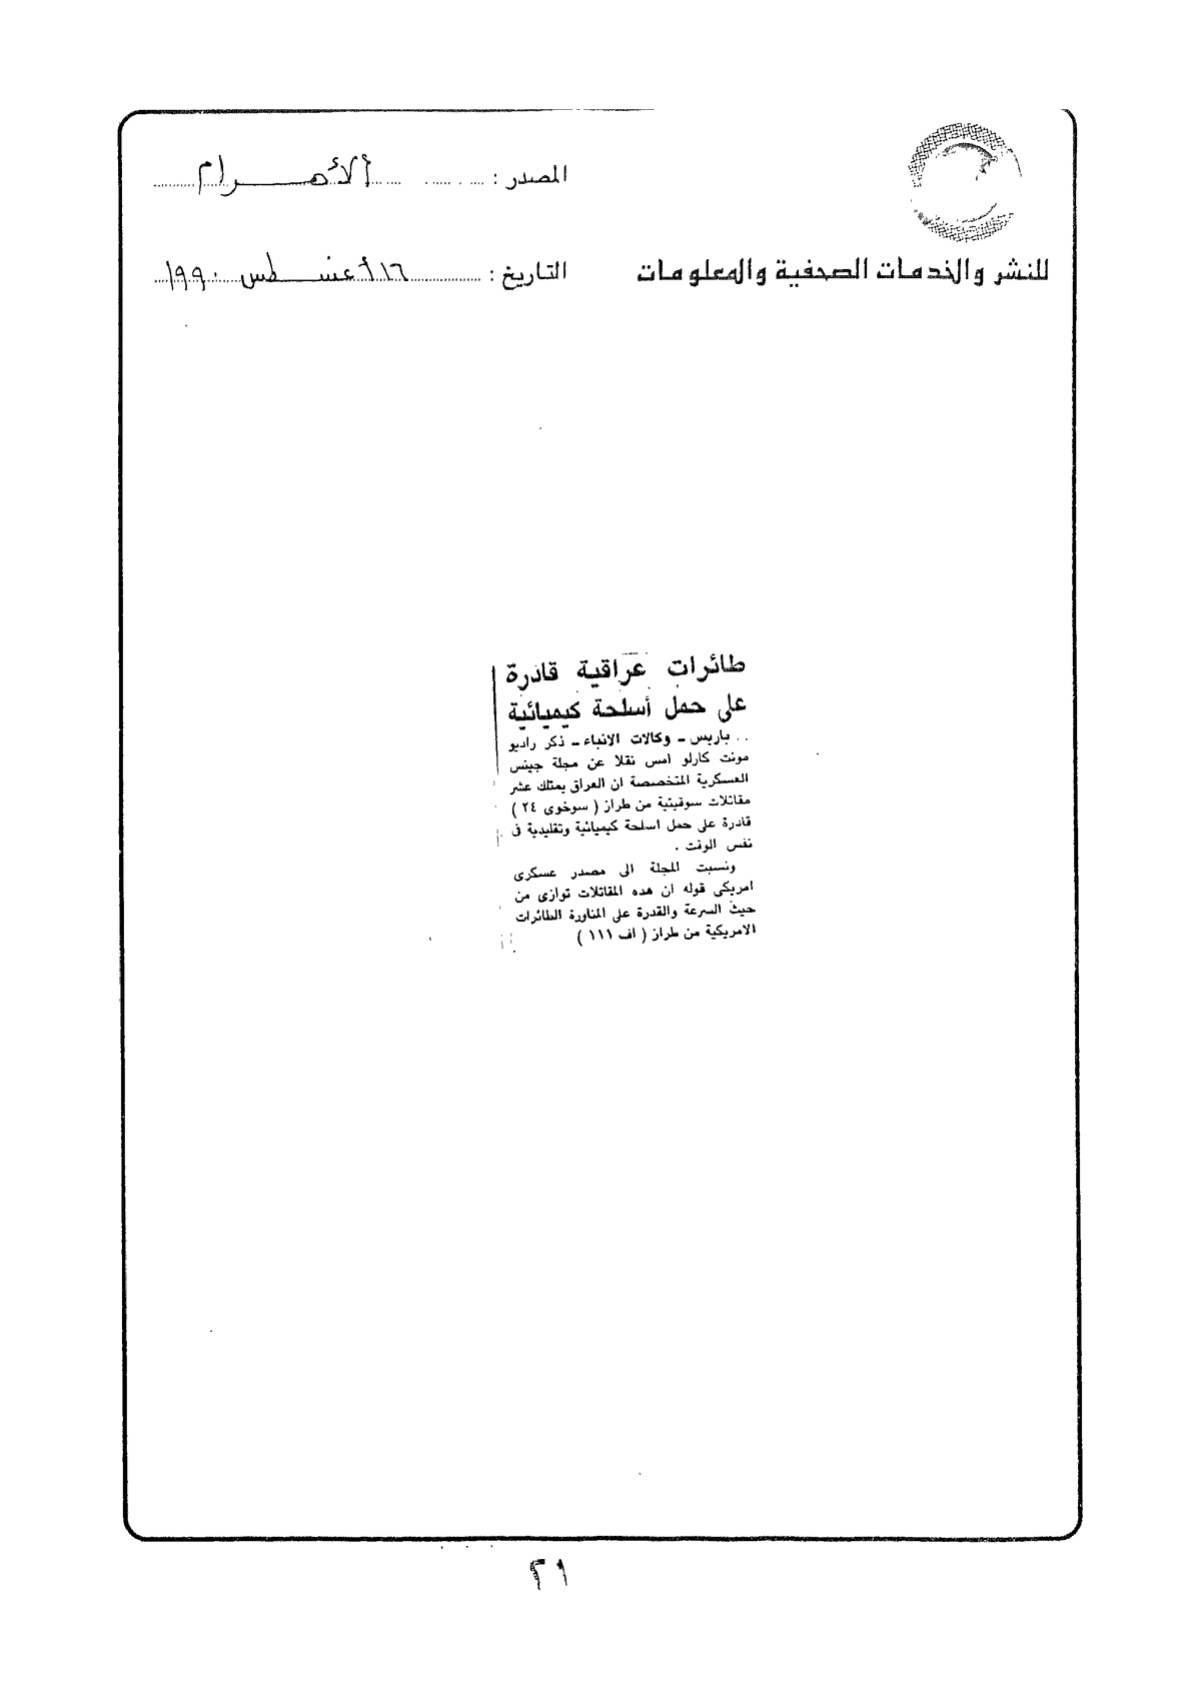 المصدر : الأهرام
للنشر والخدمات الصحفية والمعلومات
التاريخ : ١٦ أغسطس ١٩٩٠
طائرات عراقية قادرة
على حمل أسلحة كيميائية
.. باريس ـ وكالات الانباء ـ ذكر راديو
مونت كارلو امس نقلا عن مجلة جينس
العسكرية المتخصصة ان العراق يمتلك عشر
مقاتلات سوفيتية من طراز ( سوخوى ٢٤ )
قادرة على حمل اسلحة كيميائية وتقليدية فى
نفس الوقت .
ونسبت المجلة الى مصدر عسكرى
امريكى قوله ان هذه المقاتلات توازى من
حيث السرعة والقدرة على المناورة الطائرات
الامريكية من طراز ( اف ١١١ )
٢١